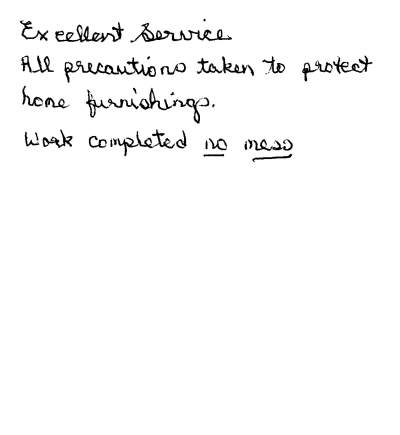 Excellent Service
All precautions taken to protect
home furnishings.
Work completed no mess